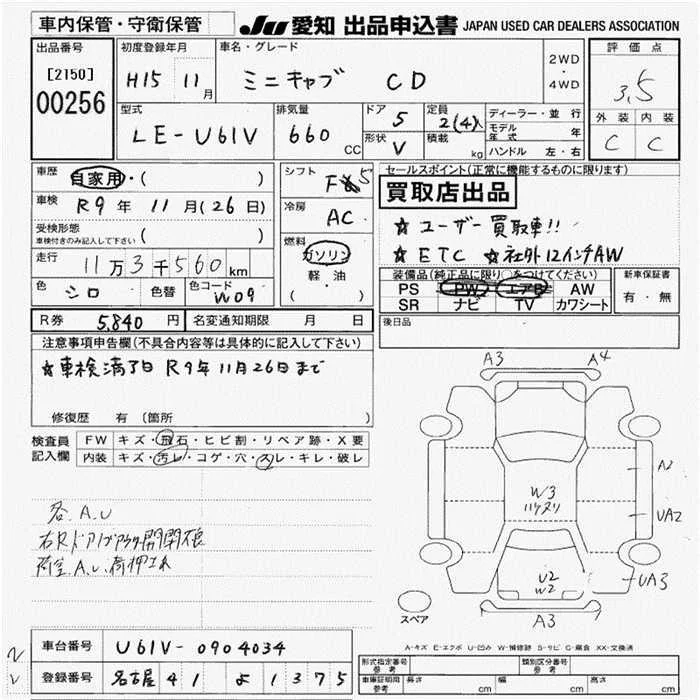 車内保管・守衛保管
JU 愛知 出品申込書 JAPAN USED CAR DEALERS ASSOCIATION
出品番号
[2150]
00256
初度登録年月
H15 11月
車名・グレード
ミニキャブ CD
2WD
・
4WD
評価点
3.5
外装 内装
C C
型式
LE-U61V
排気量
660 CC
ドア 5
形状 V
定員 2(4)
積載 kg
ディーラー・並行
モデル年式 年
ハンドル 左・右
車歴 自家用・( )
車検 R9年 11月(26日)
受検形態
車検付きのみ記入して下さい ( )
走行 11万3千560km
色 シロ 色替 色コード W09
シフト F5
冷房 AC
燃料
ガソリン
軽油
( )
セールスポイント(正常に機能するものに限ります)
買取店出品
☆ユーザー買取車!!
☆ETC ☆社外12インチAW
装備品(純正品に限り○をつけてください)
PS PW エアB AW
SR ナビ TV カワシート
新車保証書
有・無
R券 5,840円 名変通知期限 月 日
後日品
注意事項申告欄(不具合内容等は具体的に記入して下さい)
☆車検満了日 R9年11月26日まで
修復歴 有 (箇所 )
検査員記入欄
FW キズ・飛石・ヒビ割・リペア跡・X要
内装 キズ・汚レ・コゲ・穴・スレ・キレ・破レ
各A.U
右Rドアノブアウター開閉不良
荷室A.U.荷押され
A3 A4
A2
W3
ハケヌリ
UA2
U2
W2
UA3
A3
スペア
A-キズ E-エクボ U-凹み W-補修跡 S-サビ C-腐食 XX-交換済
車台番号 U61V-0904034
登録番号 名古屋 41 よ 1375
形式指定番号
参考
類別区分番号
参考
車庫証明用
参考
長さ cm 幅 cm 高さ cm